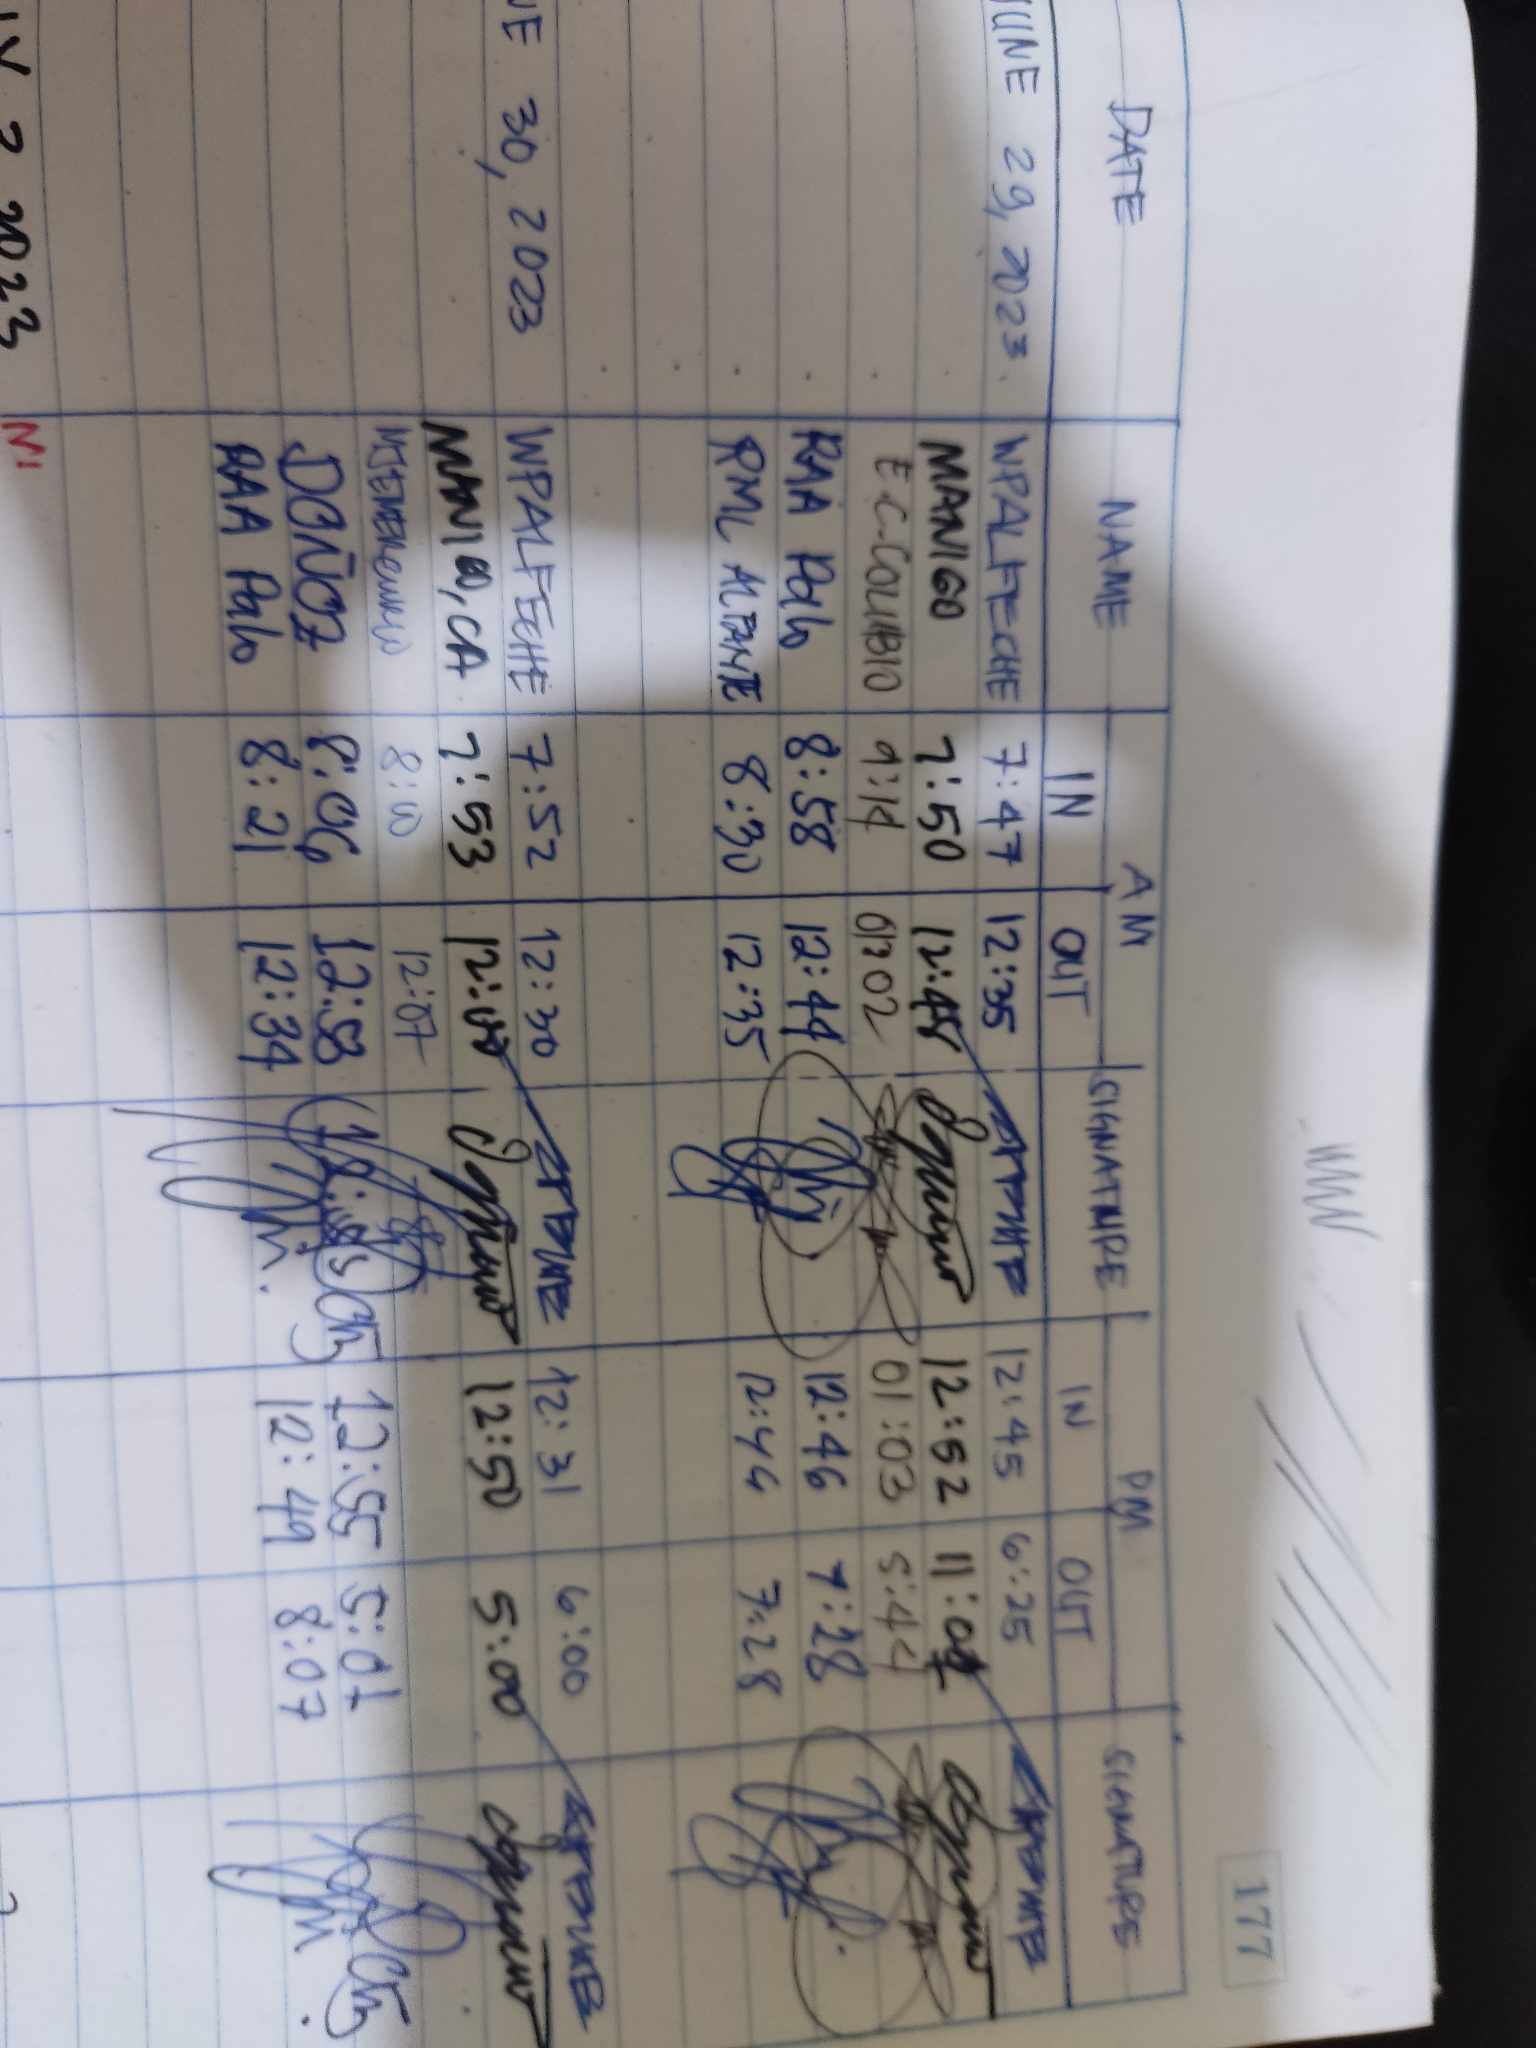 177
DATE NAME AM SIGNATURE PM SIGNATURE
IN OUT IN OUT
JUNE 29, 2023 WPALFECHE 7:47 12:35 12:45 6:25
MANIGO 7:50 12:45 12:52 11:04
E.C. COLIBIO 9:14 01:02 01:03 5:44
RAA Palo 8:58 12:44 12:46 7:28
RML ALFANTE 8:30 12:35 12:44 7:28
NE 30, 2023 WPALFECHE 7:52 12:30 12:31 6:00
MANIGO, CA 7:53 12:00 12:50 5:00
8:00 12:07
DOÑOZ 8:06 12:53 12:55 5:01
RAA Palo 8:21 12:34 12:49 8:07
2023